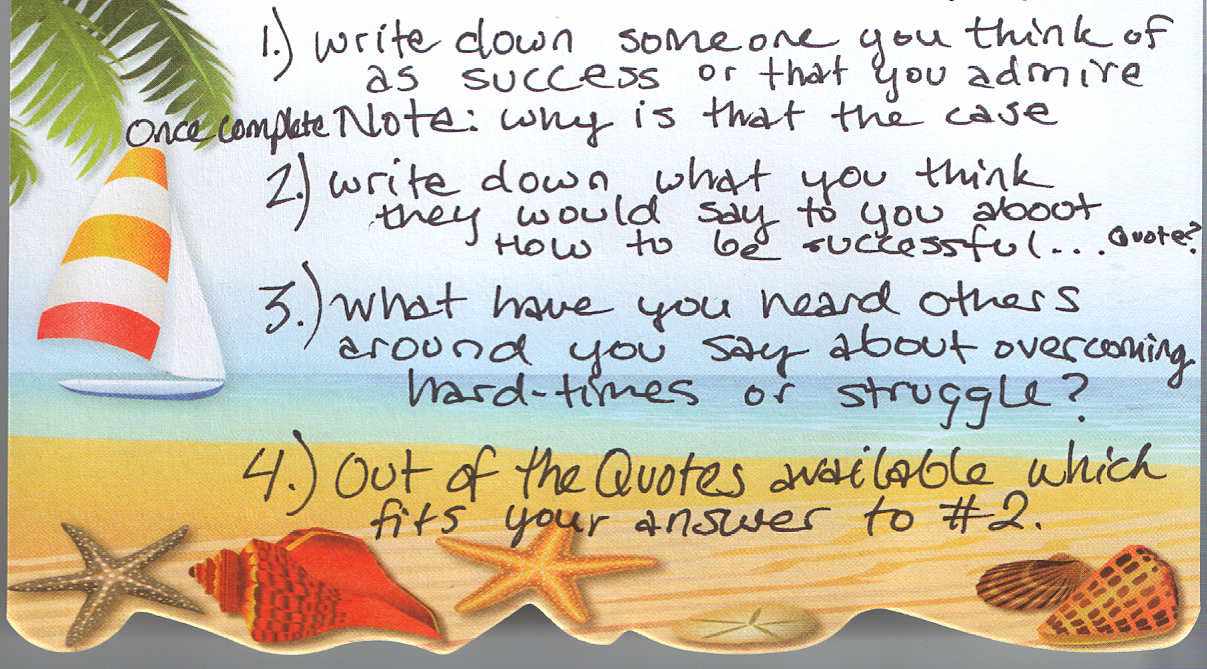 1.) write down someone you think of
as success or that you admire
Once complete Note: why is that the case
2.) write down what you think
they would say to you about
How to be successful... Quote?
3.) what have you heard others
around you say about overcoming
hard-times or struggle?
4.) Out of the Quotes available which
fits your answer to #2.